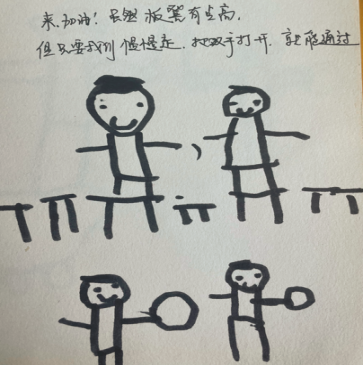 来,加油!虽然板凳有点高,
但只要我们慢慢走,把双手打开,就能通过